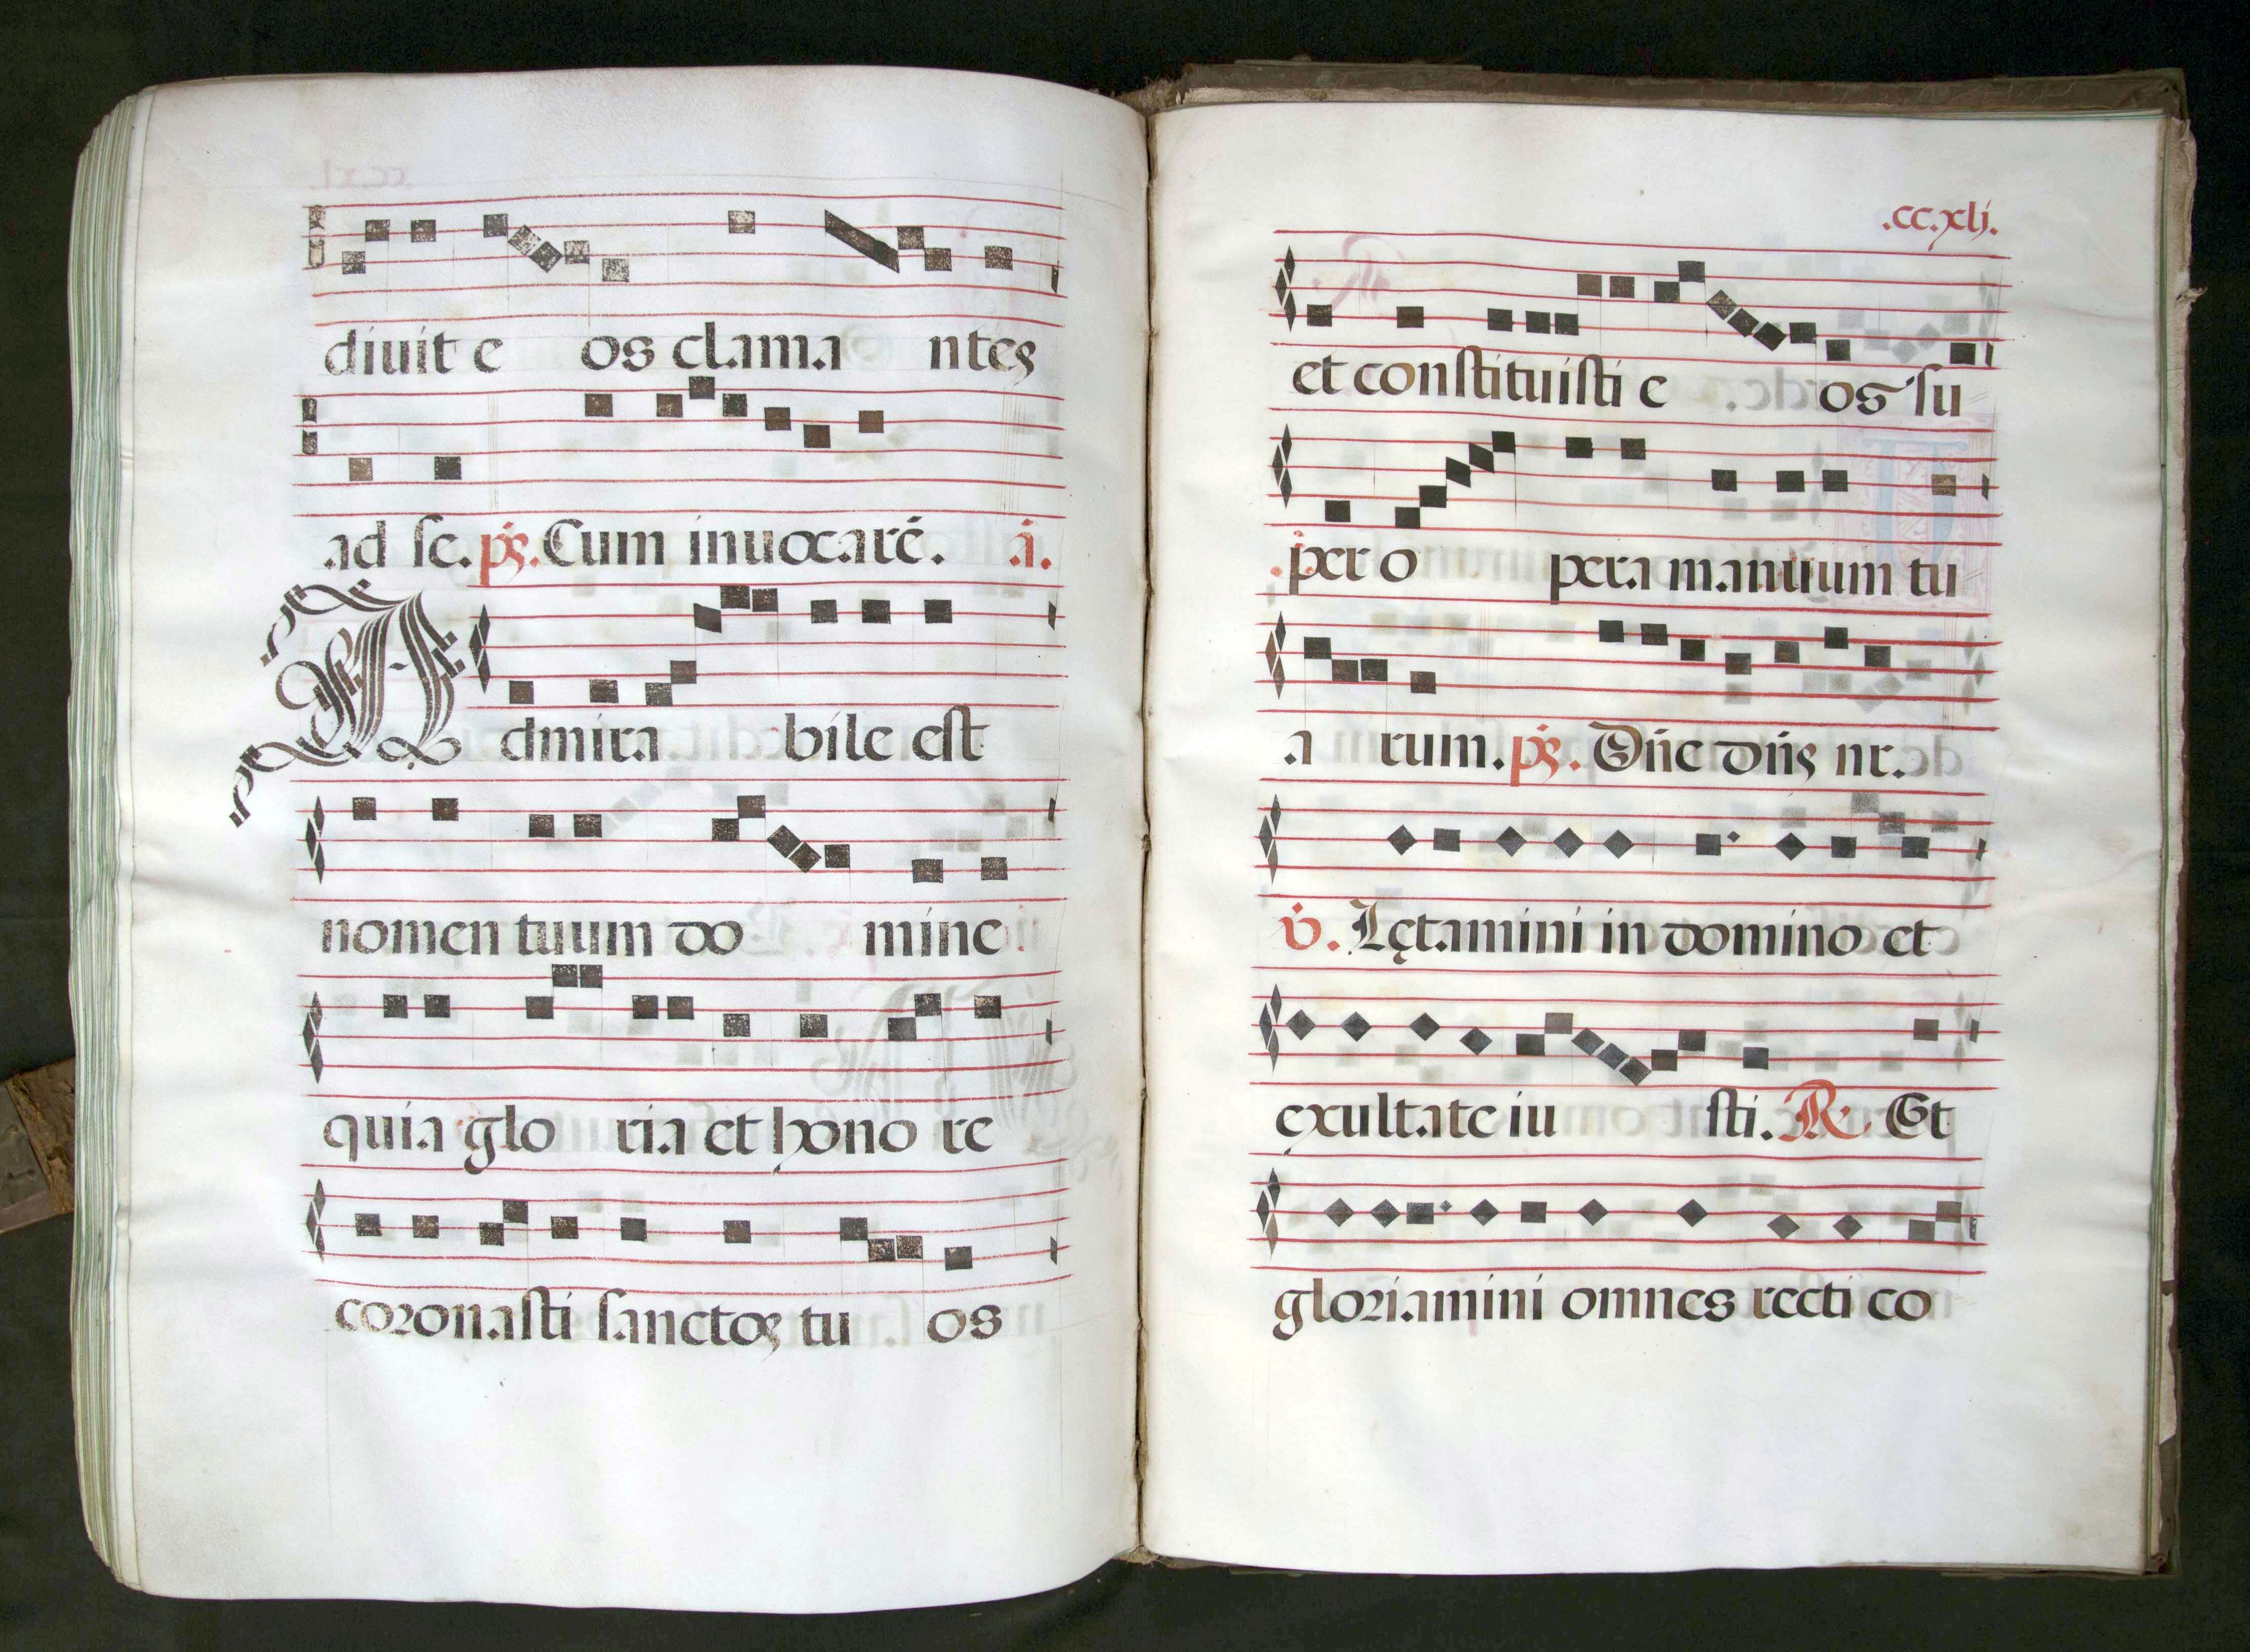 diuit e os clama ntes
ad se. ps. Cum inuocarē. ā.
Admira bile est
nomen tuum do mine
quia glo ria et hono re
coronasti sanctos tu os
.cc.xlj.
et constituisti e os su
per o pera manuum tu
a rum. ps. Dñe dñs nr.
v. Lętamini in domino et
exultate iu sti. R Et
gloriamini omnes recti co